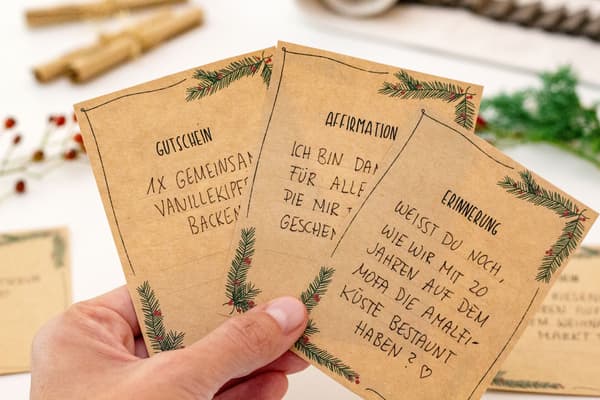 GUTSCHEIN
1X GEMEINSAM
VANILLEKIPFE
BACKEN
AFFIRMATION
ICH BIN DAN
FÜR ALLE
DIE MIR
GESCHEN
ERINNERUNG
WEISST DU NOCH,
WIE WIR MIT 20
JAHREN AUF DEM
MOFA DIE AMALFI-
KÜSTE BESTAUNT
HABEN? ♡
RIESEN
MARKT